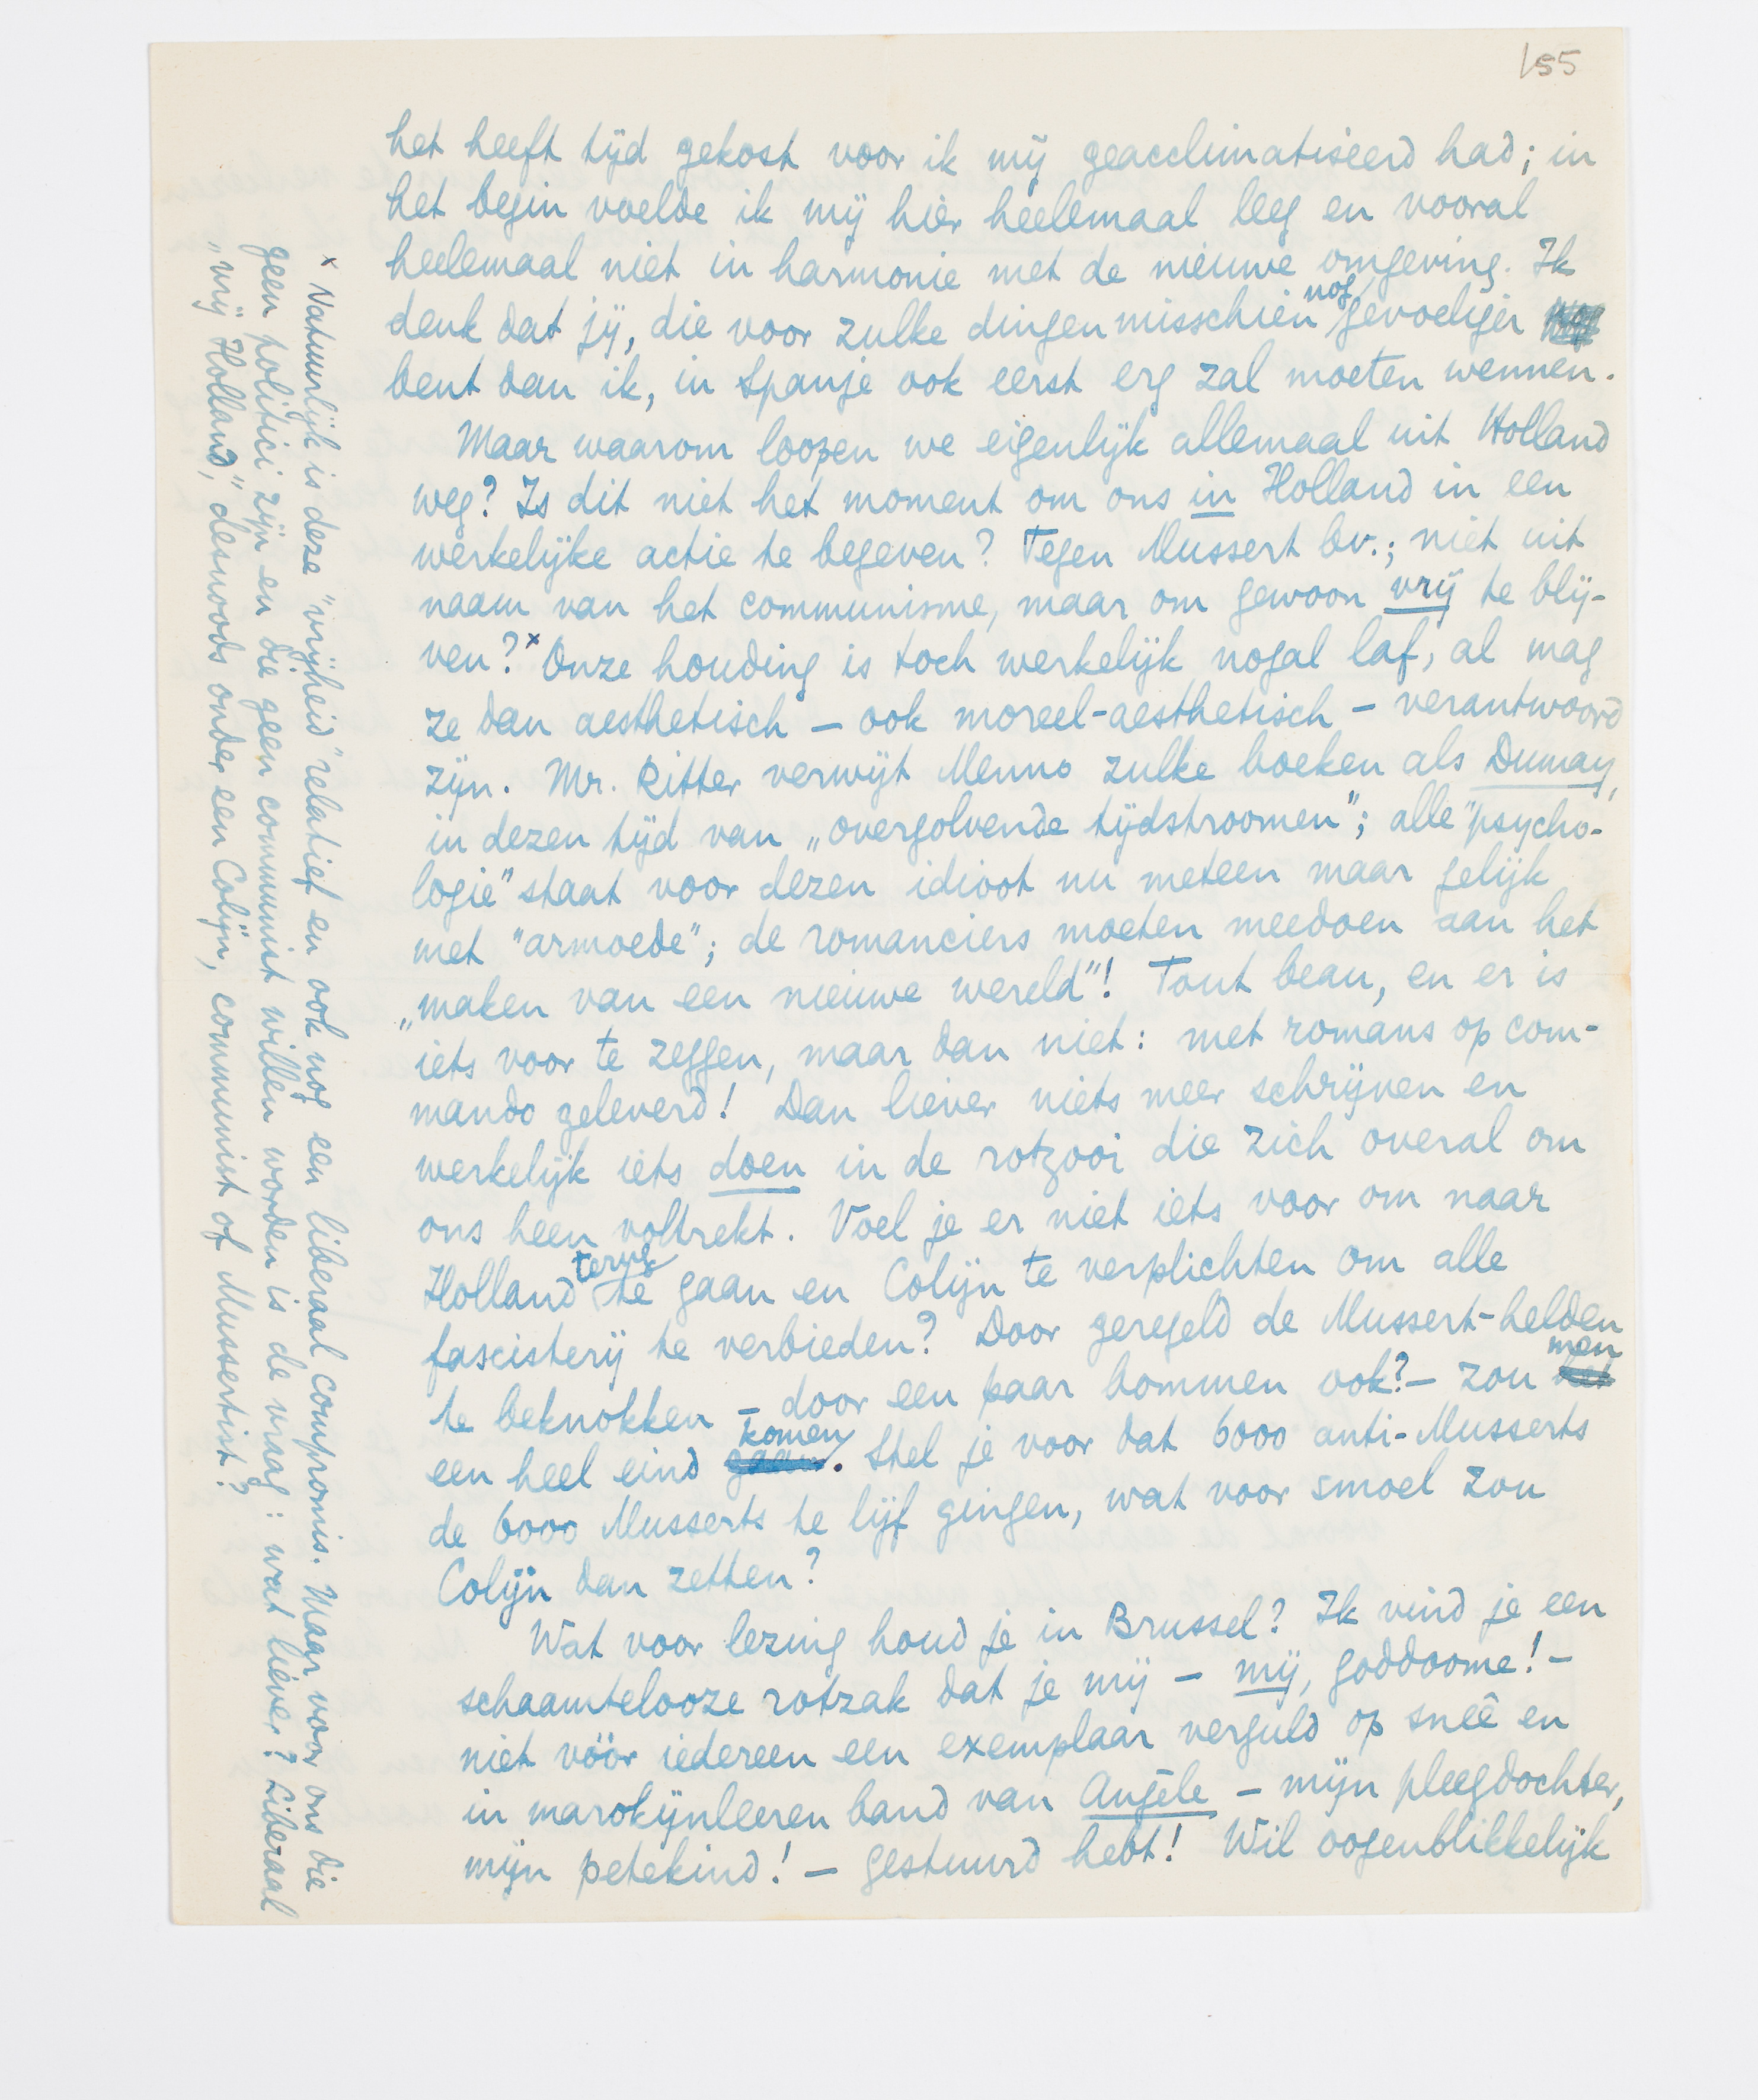 155
het heeft tijd gekost voor ik mij geacclimatiseerd had; in
het begin voelde ik mij hier heelemaal leeg en vooral
heelemaal niet in harmonie met de nieuwe omgeving. Ik
denk dat jij, die voor zulke dingen misschien nog gevoeliger
bent dan ik, in Spanje ook eerst erg zal moeten wennen.
Maar waarom loopen we eigenlijk allemaal uit Holland
weg? Is dit niet het moment om ons in Holland in een
werkelijke actie te begeven? Tegen Mussert bv.; niet uit
naam van het communisme, maar om gewoon vrij te blij-
ven?x Onze houding is toch werkelijk nogal laf, al mag
ze dan aesthetisch – ook moreel-aesthetisch – verantwoord
zijn. Mr. Ritter verwijt Menno zulke boeken als Dumay,
in dezen tijd van „overgolvende tijdstroomen"; alle "psycho-
logie" staat voor dezen idioot nu meteen maar gelijk
met "armoede"; de romanciers moeten meedoen aan het
„maken van een nieuwe wereld"! Tout beau, en er is
iets voor te zeggen, maar dan niet: met romans op com-
mando geleverd! Dan liever niets meer schrijven en
werkelijk iets doen in de rotzooi die zich overal om
ons heen voltrekt. Voel je er niet iets voor om naar
Holland terug te gaan en Colijn te verplichten om alle
fascisterij te verbieden? Door geregeld de Mussert-helden
te beknokken – door een paar bommen ook? – zou men
een heel eind komen. Stel je voor dat 6000 anti-Musserts
de 6000 Musserts te lijf gingen, wat voor smoel zou
Colijn dan zetten?
Wat voor lezing houd je in Brussel? Ik vind je een
schaamtelooze rotzak dat je mij – mij, goddoome! –
niet vóór iedereen een exemplaar verguld op sneê en
in marokijnleeren band van Angèle – mijn pleegdochter,
mijn petekind! – gestuurd hebt! Wil oogenblikkelijk
x Natuurlijk is deze "vrijheid" relatief en ook nog een liberaal compromis. Maar voor ons die
geen politici zijn en die geen communist willen worden is de vraag: wat liever? Liberaal
„vrij Holland," desnoods onder een Colijn, communist of Mussertist?